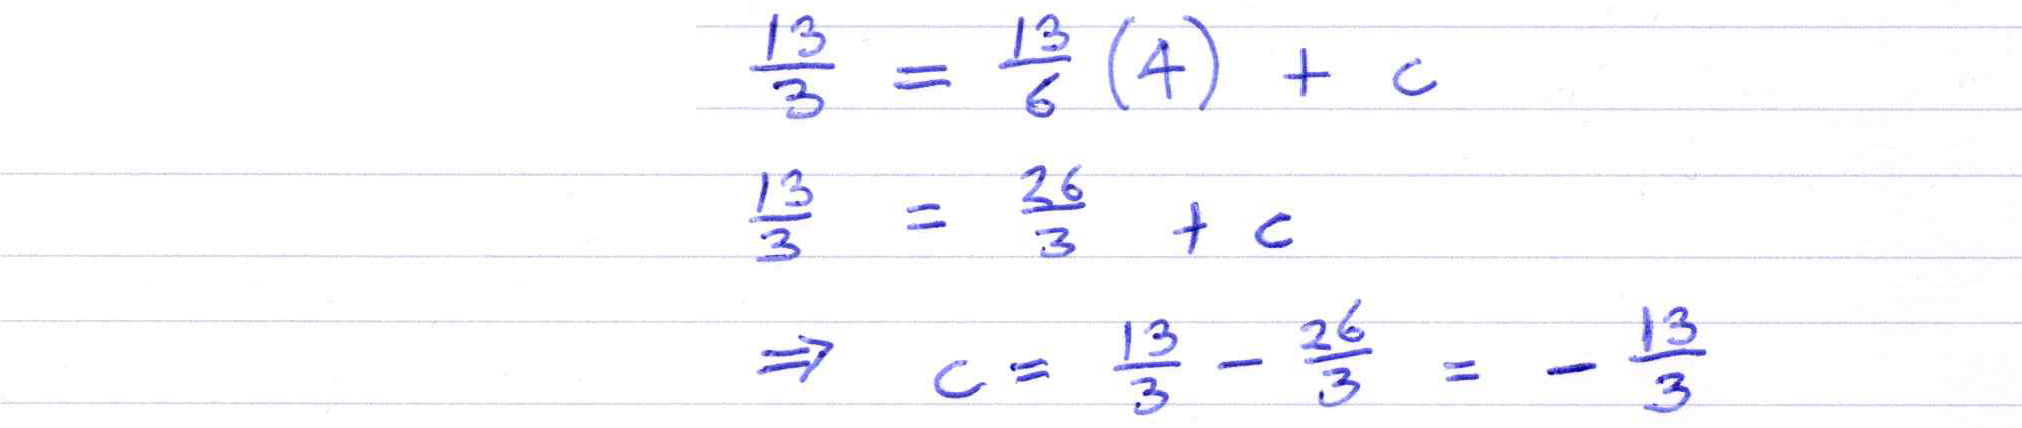 13/3 = 13/6 (4) + c
13/3 = 26/3 + c
⇒ c = 13/3 - 26/3 = - 13/3